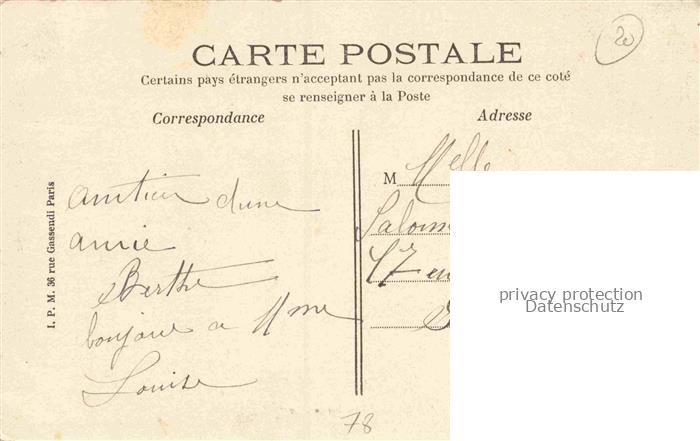 20
CARTE POSTALE
Certains pays étrangers n'acceptant pas la correspondance de ce coté
se renseigner à la Poste
Correspondance
Adresse
I. P. M. 36 rue Gassendi Paris
amitier dune
amie
Berthe
bonjour a Mme
Louise
M Melle
17 en
privacy protection
Datenschutz
78